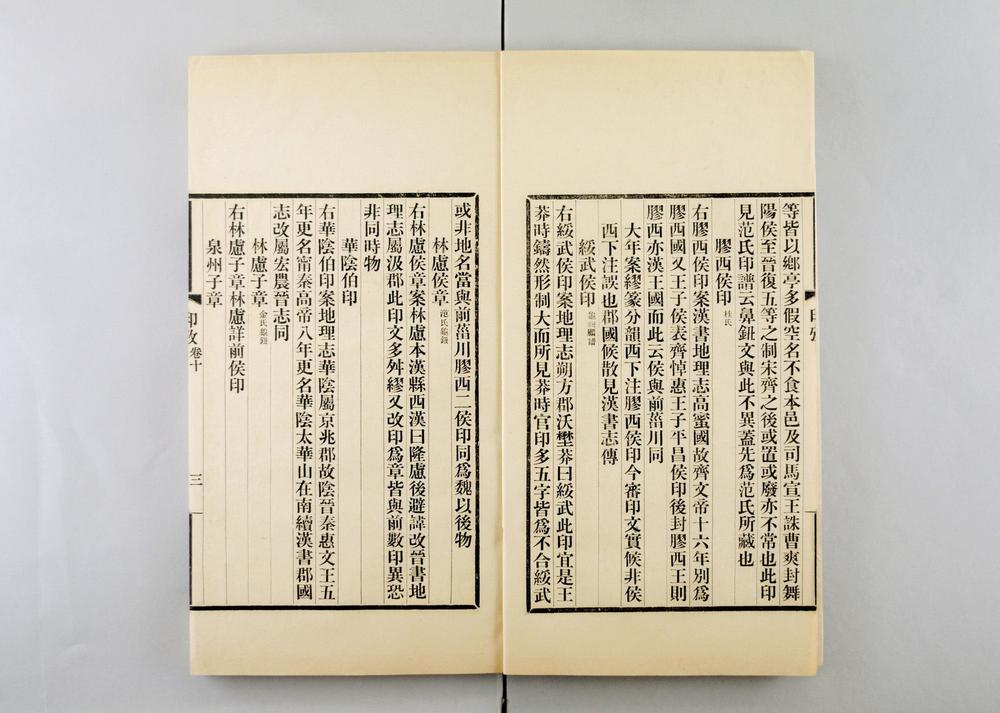 等皆以鄉亭多假空名不食本邑及司馬宣王誅曹爽封舞
陽侯至晉復五等之制宋齊之後或置或廢亦不常也此印
見范氏印譜云鼻鈕文與此不異蓋先爲范氏所藏也
膠西侯印 桂氏
右膠西侯印案漢書地理志高蜜國故齊文帝十六年別爲
膠西國又王子侯表齊悼惠王子平昌侯印後封膠西王則
膠西亦漢王國而此云侯與前菑川同
大年案繆篆分韻西下注膠西侯印今審印文實候非侯
西下注誤也郡國候散見漢書志傳
綏武侯印
右綏武侯印案地理志朔方郡沃壄莽曰綏武此印宜是王
莽時鑄然形制大而所見莽時官印多五字皆爲不合綏武
或非地名當與前菑川膠西二侯印同爲魏以後物
林慮侯章 范氏龜鈕
右林慮侯章案林慮本漢縣西漢曰隆慮後避諱改晉書地
理志屬汲郡此印文多舛繆又改印爲章皆與前數印異恐
非同時物
華陰伯印
右華陰伯印案地理志華陰屬京兆郡故陰晉秦惠文王五
年更名甯秦高帝八年更名華陰太華山在南續漢書郡國
志改屬宏農晉志同
林慮子章 金氏龜鈕
右林慮子章林慮詳前侯印
泉州子章
印攷 卷十
三